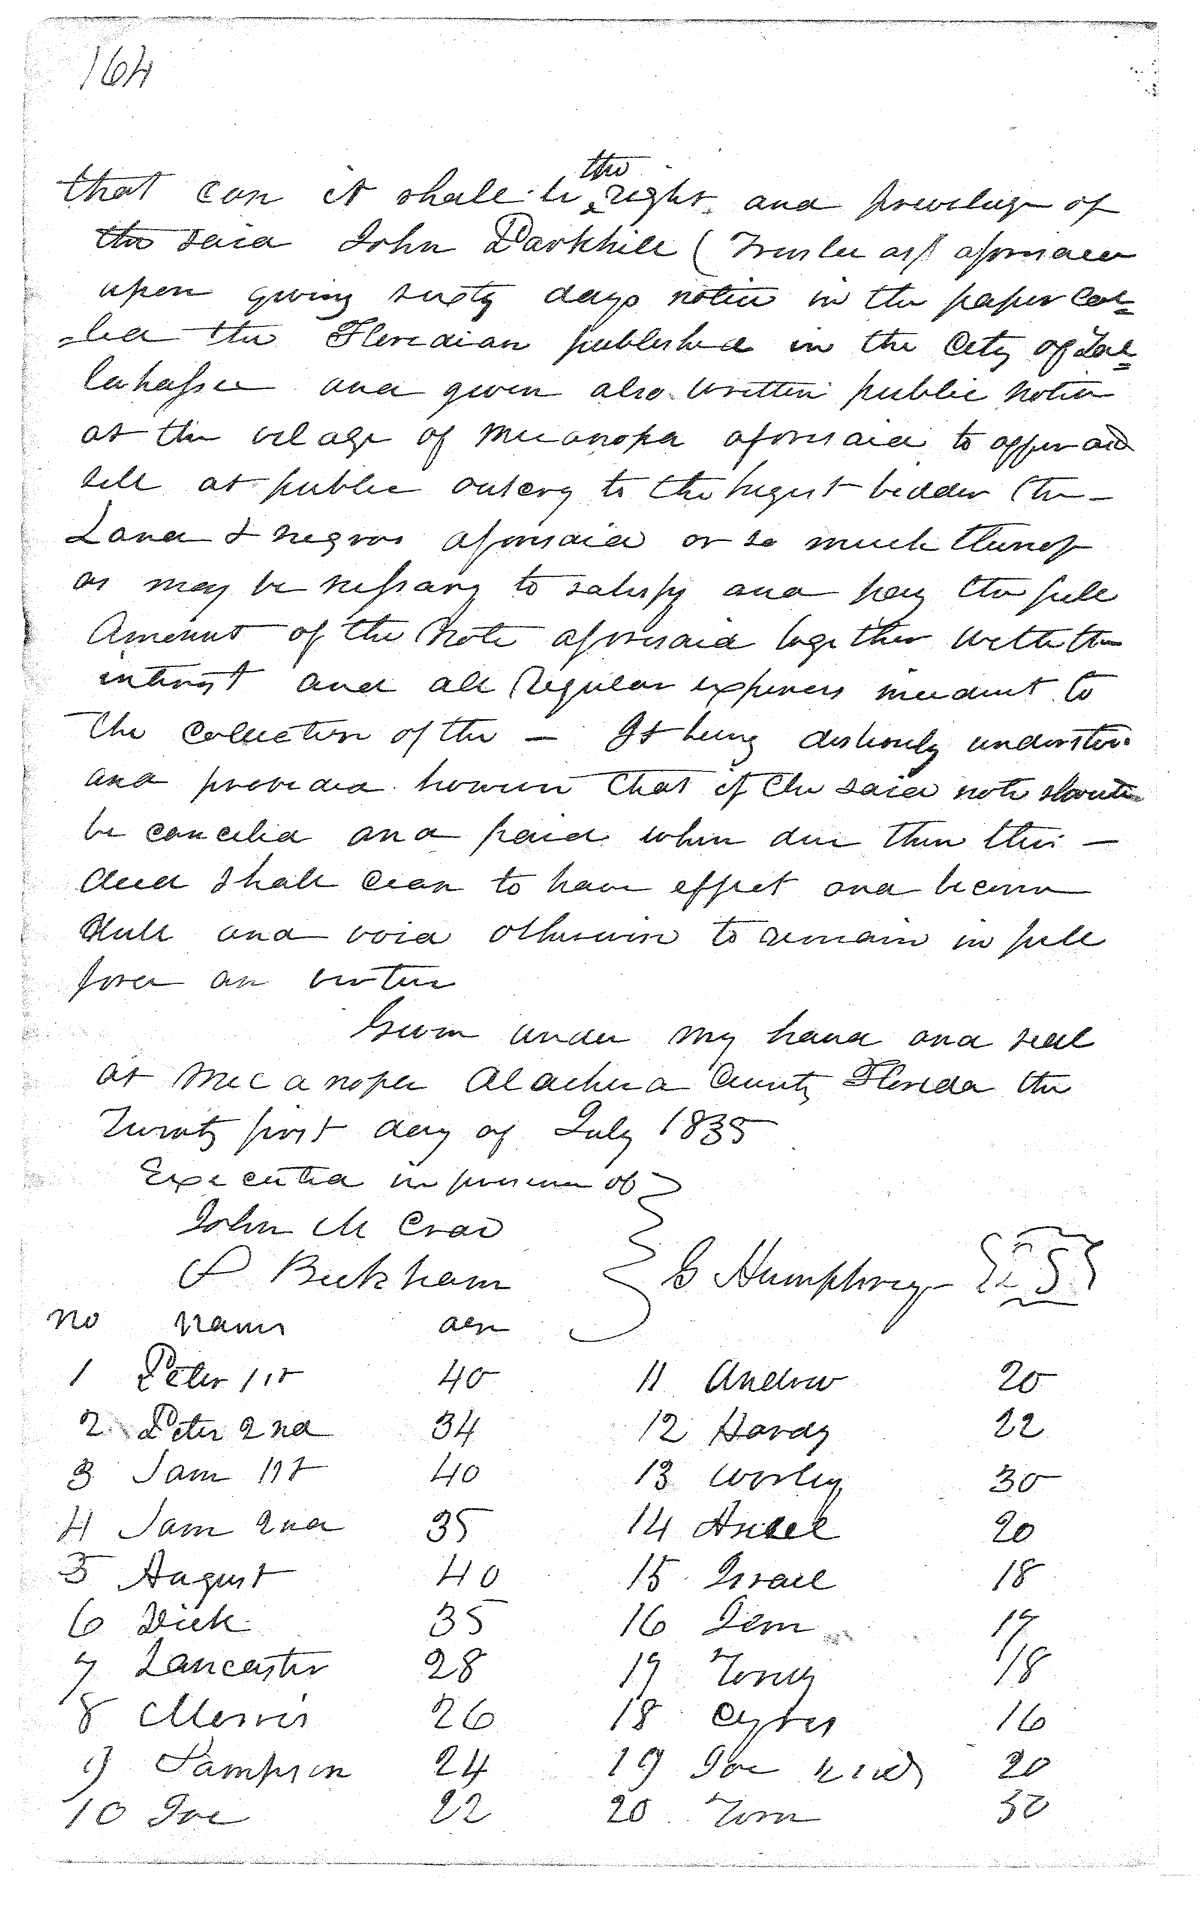 164
that case it shall be the right and privelege of
the said John Parkhill (Trustee as aforesaid
upon giving sixty days notice in the paper cal=
=led the Floridian published in the City of Tal=
lahassee and given also written public notice
at the vilage of Micanopa aforesaid to offer and
sell at public outcry to the higest bidder the -
Land & negros aforesaid or so much thereof
as may be nessary to satisfy and pay the full
Amount of the Note aforesaid together with the
interest and all Regular expenses incident to
the collection of the - It being distinctly understood
and provided however that if the said note should
be cancelled and paid when due then this -
deed shall cease to have effect and become
Null and void otherwise to remain in full
force an virtue
Given under my hand and seal
at Micanopa Alachua County Florida the
Twenty first day of July 1835
Executed in presence of
John M Craw
P Beckham
G Humphreys LS
no names age
1 Peter 1st 40 11 Andrew 20
2 Peter 2nd 34 12 Hardy 22
3 Sam 1st 40 13 Worley 30
4 Sam 2nd 35 14 Ansel 20
5 August 40 15 Israel 18
6 Dick 35 16 Jem 17
7 Lancaster 28 17 Toney 18
8 Morris 26 18 Cyrus 16
9 Sampson 24 19 Joe 20
10 Joe 22 20 Tom 30